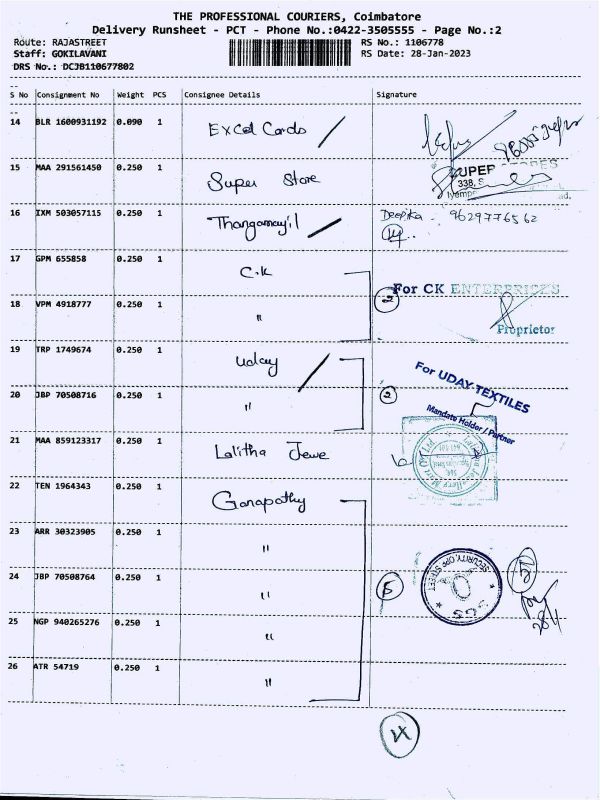 THE PROFESSIONAL COURIERS, Coimbatore
Delivery Runsheet - PCT - Phone No.:0422-3505555 - Page No.:2
Route: RAJASTREET
RS No.: 1106778
Staff: GOKILAVANI
RS Date: 28-Jan-2023
DRS No.: DCJB110677802
S No Consignment No Weight PCS Consignee Details Signature
14 BLR 1600931192 0.090 1 Excel Cards
15 MAA 291561450 0.250 1 Super Store
SUPER STORES
338, S
16 IXM 503057115 0.250 1 Thangamayil Deepika - 9629776562
17 GPM 655858 0.250 1 C.K
2 For CK ENTERPRISES
18 VPM 4918777 0.250 1 "
Proprietor
19 TRP 1749674 0.250 1 Uday
For UDAY TEXTILES
20 JBP 70508716 0.250 1 " 2
Mandate Holder / Partner
21 MAA 859123317 0.250 1 Lalitha Jewe
22 TEN 1964343 0.250 1 Ganapathy
23 ARR 30323905 0.250 1 "
24 JBP 70508764 0.250 1 " 5
SECURITY, OPP STREET
SGS
25 NGP 940265276 0.250 1 "
26 ATR 54719 0.250 1 "